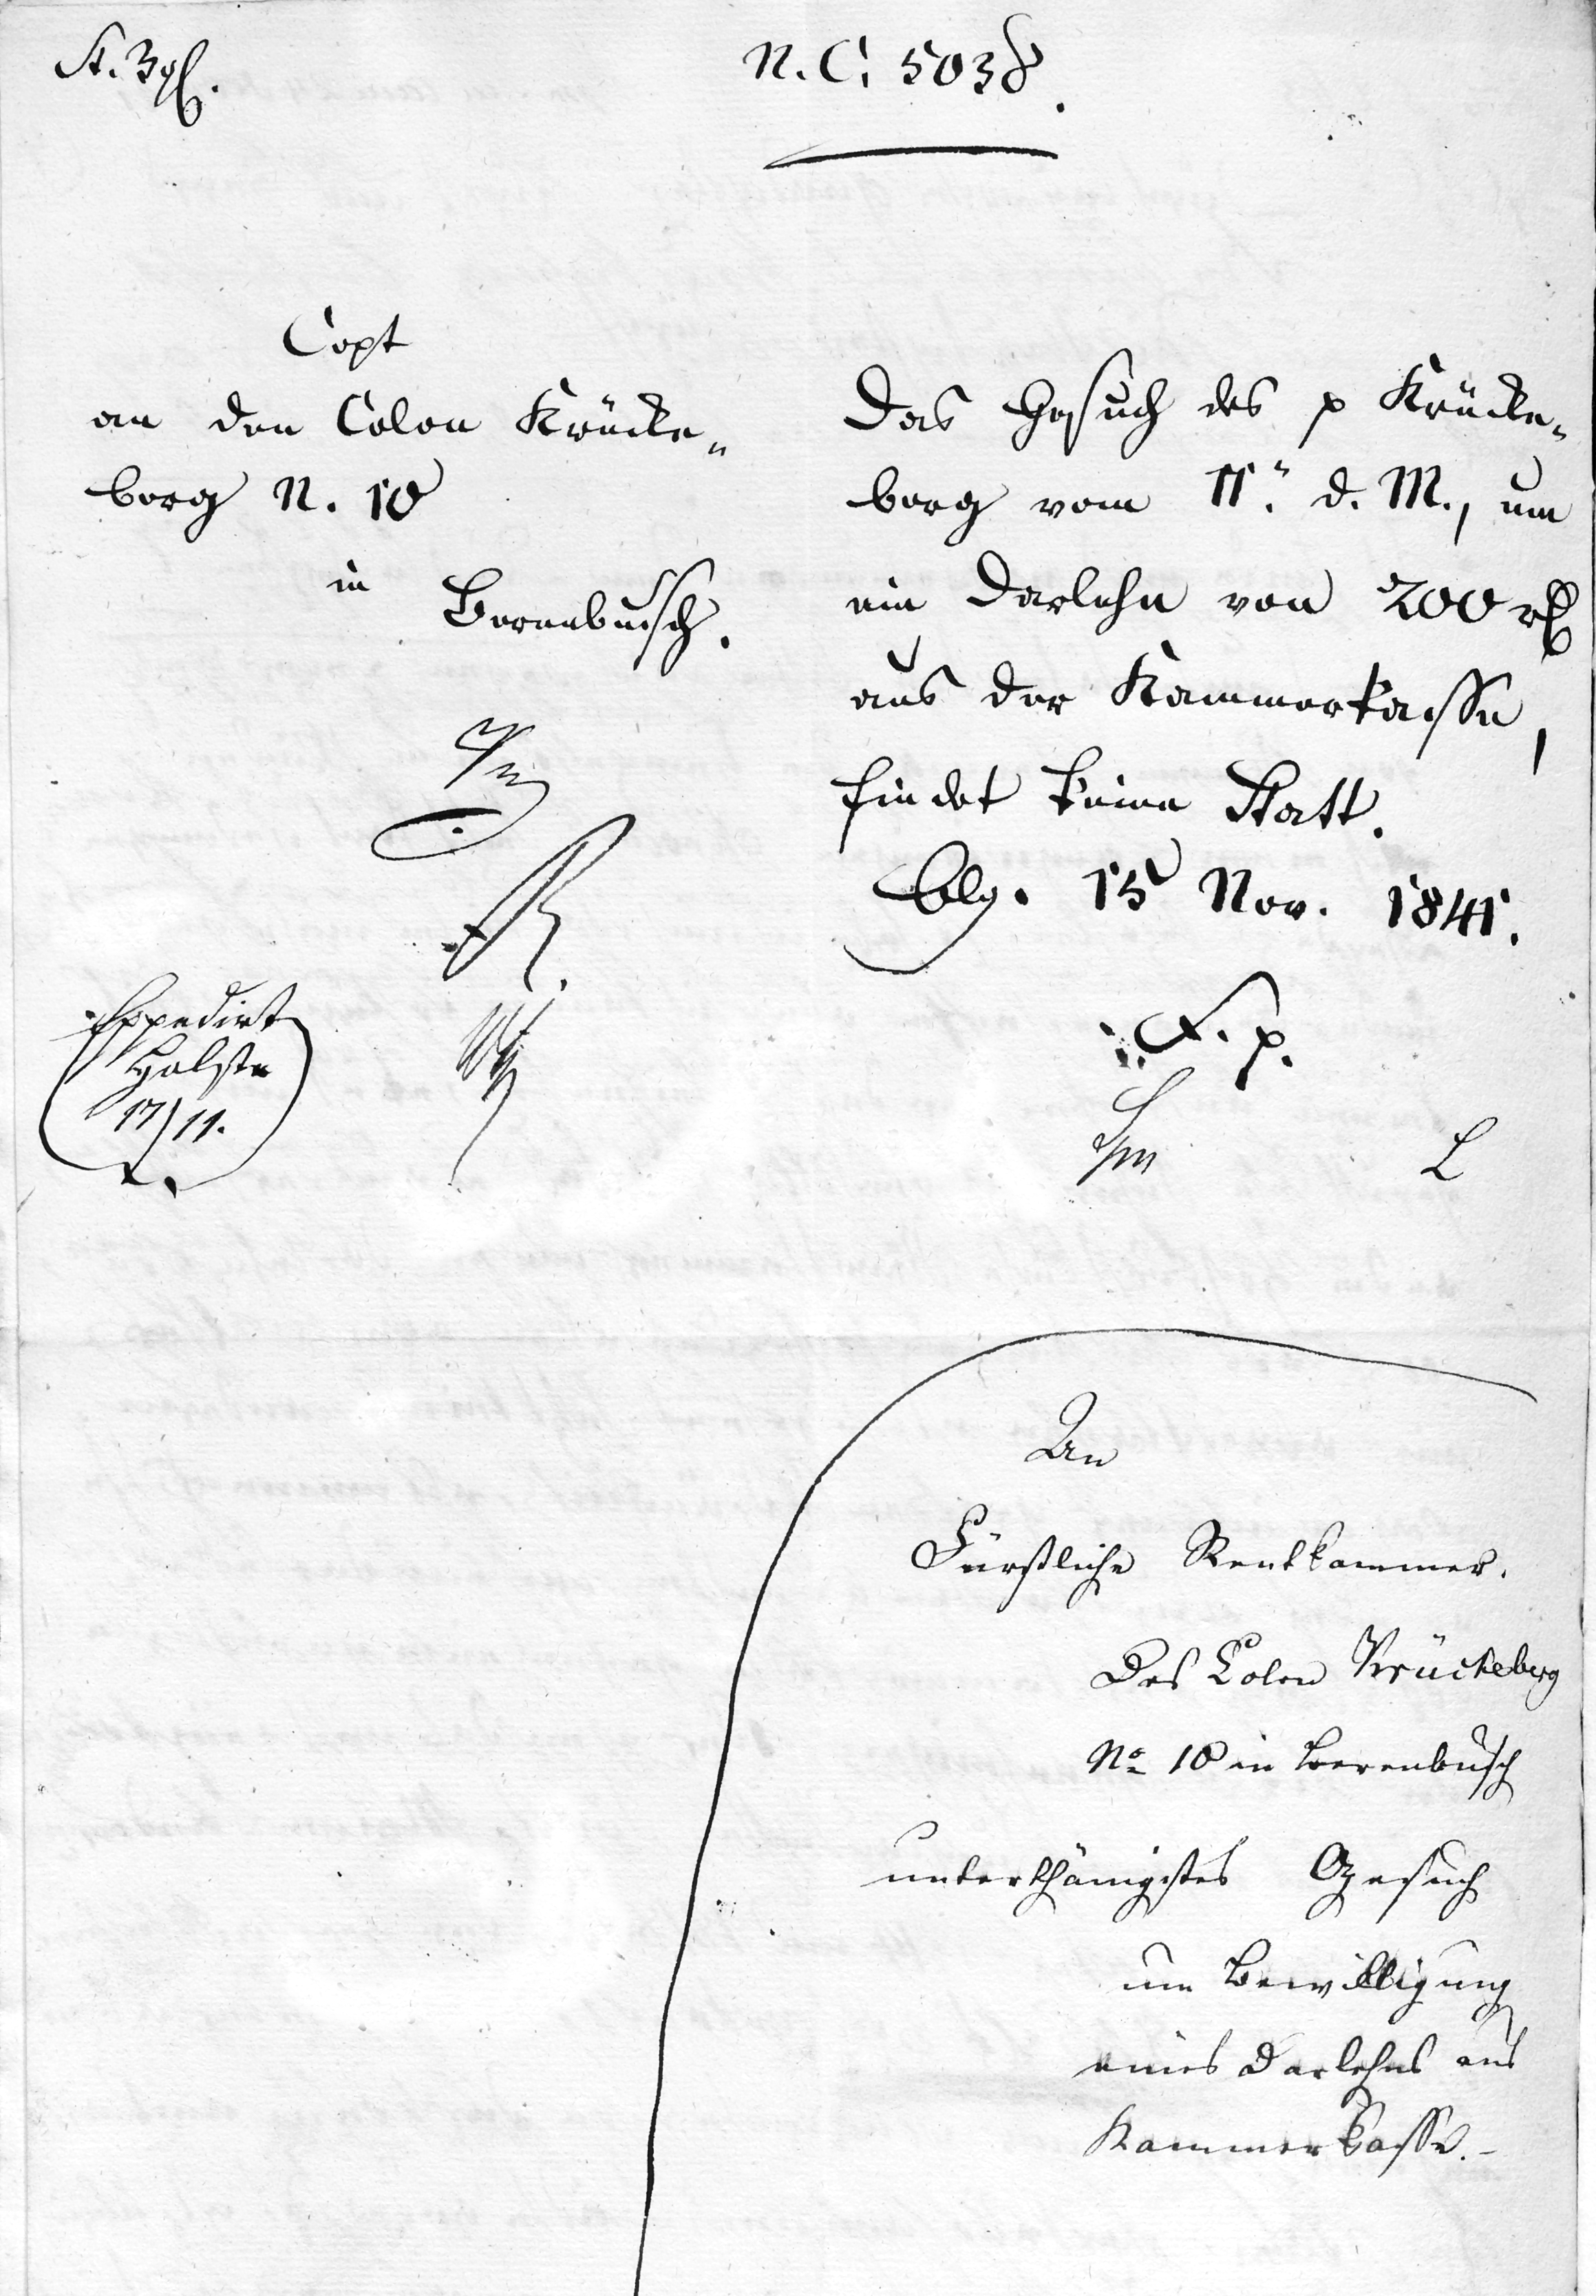 N. C. 5038.
Copt
an den Colon Krücke-
berg N. 10
in Berenbusch.
Expedirt
Holste
17/11.
Das Gesuch des p Krücke-
berg vom 11. d. M., um
ein Darlehn von 200 rℓ
aus der Kammerkasse,
findet keine Statt.
Bbg. 15 Nov. 1841.
F. p.
L
An
Fürstliche Rentkammer.
Des Colon Krückeberg
No 10 in Berenbusch
unterthänigstes Gesuch
um Bewilligung
eines Darlehns aus
Kammerkasse.-